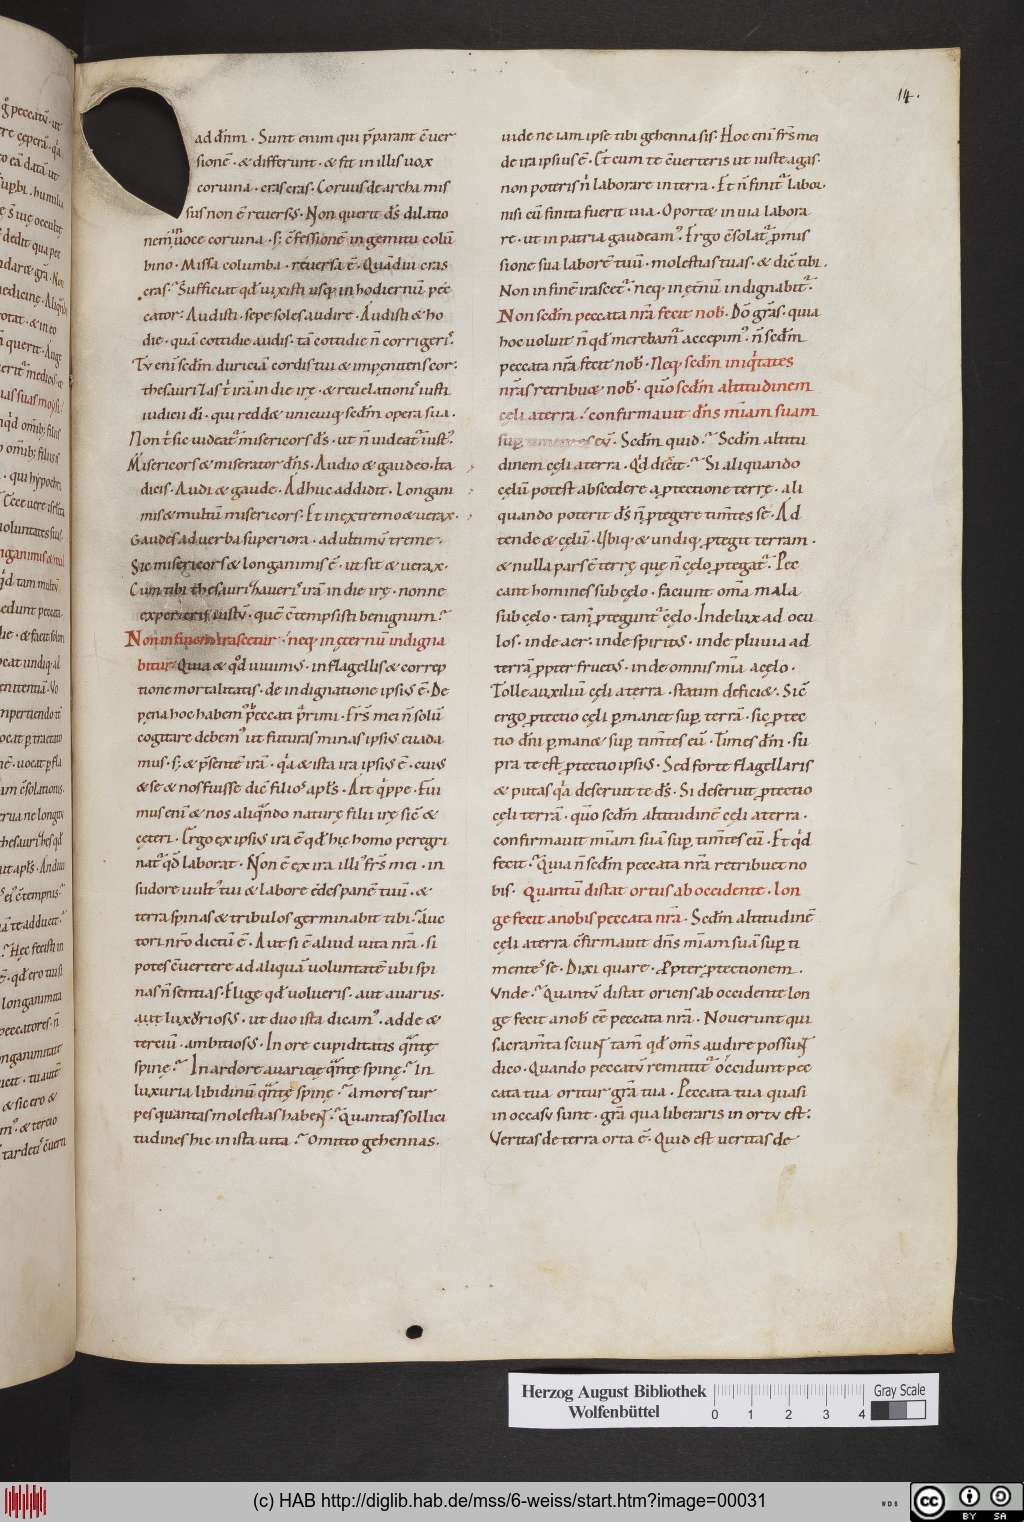 14.
ad dn̄m . Sunt enim qui p̄parant c̄uer
sionē . & differunt . & fit in illis uox
coruina . cras cras . Coruus de archa mis
sus non ē reuersꝰ . Non querit d̄s dilatio
nem in uoce coruina . sꝫ c̄fessionē in gemitu colū
bino . Missa columba . reuersa ē . Quādiu cras
cras . Sufficiat qđ uixisti usqꝫ in hodiernū pec
cator . Audisti . sepe soles audire . Audisti & ho
die . quā cottidie audis . tā cottidie n̄ corrigerꝭ .
Tu eni sc̄dm duriciā cordis tui & inpenitens cor .
thesaurizas t̓ irā in die irę . & reuelationꝭ iusti
iudicii dī . qui reddꝫ unicuiqꝫ sc̄dm opera sua .
Non t̓ sic uideatᷣ misericors d̄s . ut n̄ uideatᷣ iustꝰ .
Misericors & miserator dn̄s . Audio & gaudeo . Ita
dicis . Audi & gaude . Adhuc addidit . Longani
mis & multū misericors . Et in extremo & uerax .
Gaudes ad uerba superiora . ad ultimū treme .
Sic misericors & longanimis ē . ut sit & uerax .
Cum tibi thesaurizaueris irā in die irę . nonne
experieris iustū . quē c̄tempsisti benignum .
Non in finem irascetur . neqꝫ in ęternū indigna
bitur . Quia & qđ uiuimꝰ . in flagellis & correp
tione mortalitatis . de indignatione ipsiꝰ ē . De
pęna hoc habemꝰ peccati p̓mi . Frs̄ mei n̄ solū
cogitare debemꝰ ut futuras minas ipsiꝰ euada
mus . sꝫ & p̄sentē irā . qa & ista ira ipsiꝰ ē . cuiꝰ
& se & nos fuisse dic̄ filios apl̄s . Ait qippe . Fui
mus enī & nos aliqn̄do naturę filii irę sic̄ &
cęteri . Ergo ex ipsiꝰ ira ē qđ hic homo peregri
natᷣ qđ laborat . Non ē ex ira illiꝰ frs̄ mei . in
sudore uultꝰ tui & labore edes panē tuū . &
terra spinas & tribulos germinabit tibi . auc
tori nr̄o dictū ē . Aut si ē aliud uita nr̄a . si
potes c̄uertere ad aliquā uoluntatē ubi spi
nas n̄ sentias . Elige qđ uolueris . aut auarus .
aut luxuriosꝰ . ut duo ista dicamꝰ . adde &
tercium . ambitiosꝰ . In ore cupiditatis qn̄tę
spinę . In ardore auaricię qn̄tę spinę . In
luxuria libidinū qn̄tę spinę . Amores tur
pes quantas molestias habent . Quantas sollici
tudines hic in ista uita . Omitto gehennas .
uide ne iam ipse tibi gehenna sis . Hoc enī frs̄ mei
de ira ipsius ē . Et cum te c̄uerteris ut iuste agas .
non poteris n̄ laborare in terra . Et n̄ finitᷣ labor .
nisi cū finita fuerit uia . Oportꝫ in uia labora
re . ut in patria gaudeamꝰ . Ergo c̄solatᷣ p̓mis
sione sua laborē tuū . molestias tuas . & dic̄ tibi .
Non in finē irascetᷣ neqꝫ in ęt̄nū indignabitᷣ .
Non sc̄dm peccata nr̄a fecit nob̄ . Dō gr̄as . quia
hoc uoluit n̄ qđ merebamᷣ accepimꝰ . n̄ sc̄dm
peccata nr̄a fecit nob̄ . Neqꝫ sc̄dm iniqtates
nr̄as retribuꝫ nob̄ . Quō sc̄dm altitudinem
cęli a terra . confirmauit dn̄s mīam suam
sup timentes eū . Sc̄dm quid . Sc̄dm altitu
dinem cęli a terra . Qd dicit . Si aliquando
cęlū potest abscedere a ꝓtectione terrę . ali
quando poterit d̄s n̄ ꝓtegere tim̄tes se . Ad
tende & cęlū . Ubiqꝫ & undiqꝫ ꝓtegit terram .
& nulla pars ē terrę quę n̄ cęlo ꝓtegatᷣ . Pec
cant homines sub cęlo . faciunt om̄a mala
sub cęlo . tam̄ ꝓteguntᷣ cęlo . Inde lux ad ocu
los . inde aer . inde spiritꝰ . inde pluuia ad
terrā ꝓpter fructꝰ . inde omnis mīa a cęlo .
Tolle auxiliū cęli a terra . statim deficiꝫ . Sic̄
ergo ꝓtectio cęli ꝑmanet sup terrā . sic ꝓtec
tio dn̄i ꝑmanꝫ sup tim̄tes eū . Times dn̄m . su
pra te est ꝓtectio ipsiꝰ . Sed forte flagellaris
& putas qa deseruit te d̄s . Si deseruit ꝓtectio
cęli terrā . quō sc̄dm altitudinē cęli a terra .
confirmauit mīam suā sup tim̄tes eū . Et qd
fecit . Quia n̄ sc̄dm peccata nr̄a retribuet no
bis . Quantū distat ortus ab occidente . lon
ge fecit a nobis peccata nr̄a . Sc̄dm altitudinē
cęli a terra c̄firmauit dn̄s mīam suā sup ti
mentes se . Dixi quare . Ꝓpter ꝓtectionem .
Vnde . Quantū distat oriens ab occidente lon
ge fecit a nob̄ ee peccata nr̄a . Nouerunt qui
sacram̄ta sciunt tam̄ qđ om̄s audire possunt
dico . Quando peccatū remittitᷣ occidunt pec
cata tua oritur gr̄a tua . Peccata tua quasi
in occasu sunt . gr̄a qua liberaris in ortu est .
Veritas de terra orta ē . Quid est ueritas de
Herzog August Bibliothek
Wolfenbüttel
Gray Scale
0 1 2 3 4
(c) HAB http://diglib.hab.de/mss/6-weiss/start.htm?image=00031
WDB
cc
BY SA